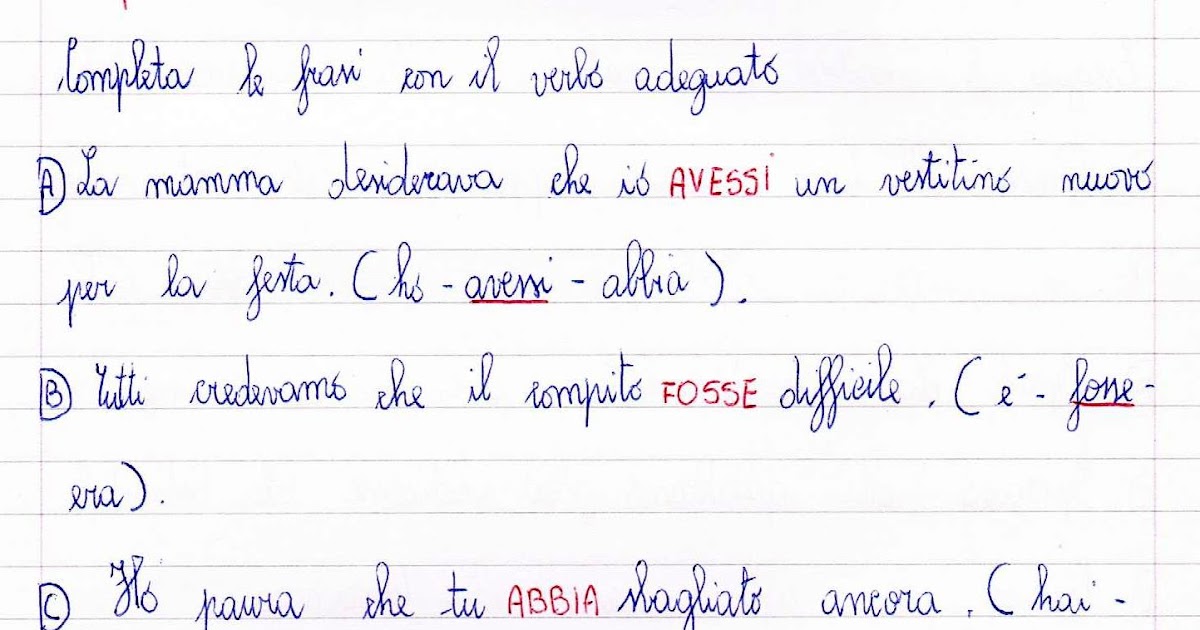 Completa le frasi con il verbo adeguato
A) La mamma desiderava che io AVESSI un vestitino nuovo
per la festa. (ho - avessi - abbia).
B) Tutti credevamo che il compito FOSSE difficile. (é - fosse -
era).
C) Ho paura che tu ABBIA sbagliato ancora. (hai -